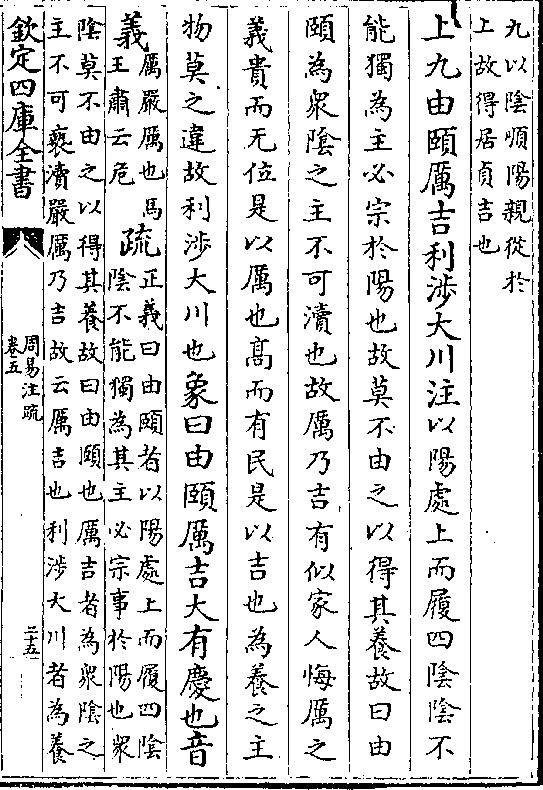 九以陰順陽親從於
上故得居貞吉也
上九由頤厲吉利涉大川注以陽處上而履四陰陰不
能獨為主必宗於陽也故莫不由之以得其養故曰由
頤為衆陰之主不可瀆也故厲乃吉有似家人悔厲之
義貴而无位是以厲也髙而有民是以吉也為養之主
物莫之違故利涉大川也象曰由頤厲吉大有慶也音
義
厲嚴厲也馬
王肅云危
疏
正義曰由頤者以陽處上而履四陰
陰不能獨為其主必宗事於陽也衆
陰莫不由之以得其養故曰由頤也厲吉者為衆陰之
主不可褻瀆嚴厲乃吉故云厲吉也利涉大川者為養
欽定四庫全書
周易注疏
卷五
三十五